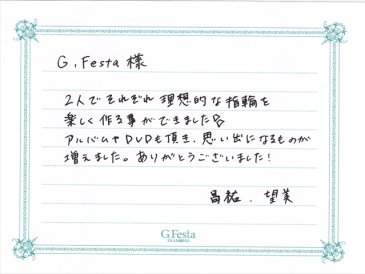 G.Festa 様
2人でそれぞれ理想的な指輪を
楽しく作る事ができました
アルバムやDVDも頂き、思い出になるものが
増えました。ありがとうございました!
昌祐. 望美
G.Festa
DIAMOND